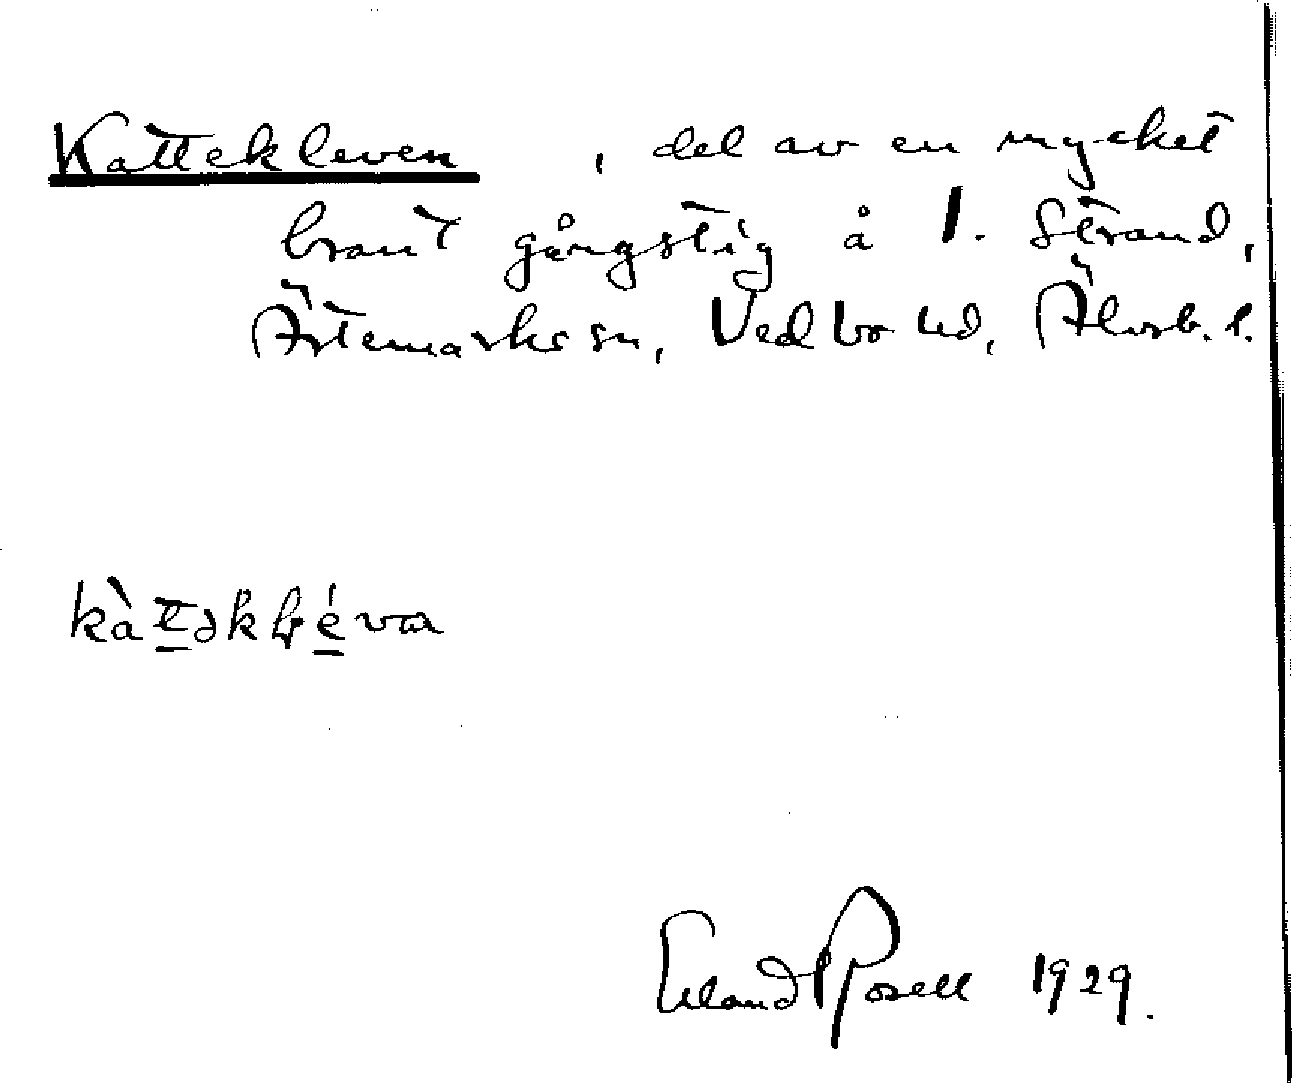 Kattekleven, del av en mycket
brant gångstig å 1. Strand,
Ärtemarks sn, Vedbo hd, Älvsb. l.
kàt̲əkl̥é̲va
Erland Rosell 1929.